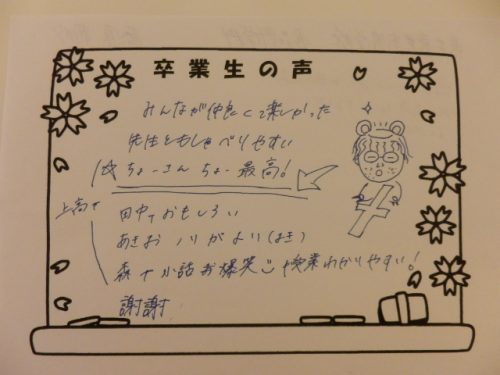 卒業生の声
みんなが仲良くて楽しかった
先生ともしゃべりやすい
ちょーさん ちょー最高!
田中ておもしろい
あきお ノリがよい
森 小話が爆笑 授業わかりやすい!
謝謝